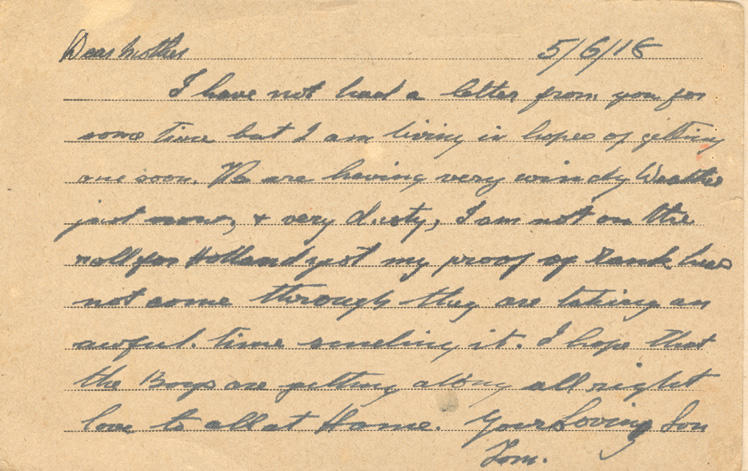 Dear Mother 5/6/18
I have not had a letter from you for
some time but I am living in hopes of getting
one soon. We are having very windy Weather
just now, & very dusty, I am not on the
roll for Holland yet my proof of Rank has
not come through they are taking an
awful. time sending it. I hope that
the Boys are getting along all right
love to all at Home. Your Loving Son
Tom.